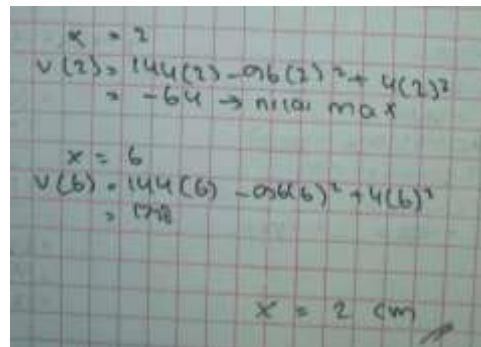 x = 2
v(2) = 144(2) - 96(2)² + 4(2)²
= -64 → nilai max
x = 6
v(6) = 144(6) - 96(6)² + 4(6)²
x = 2 cm